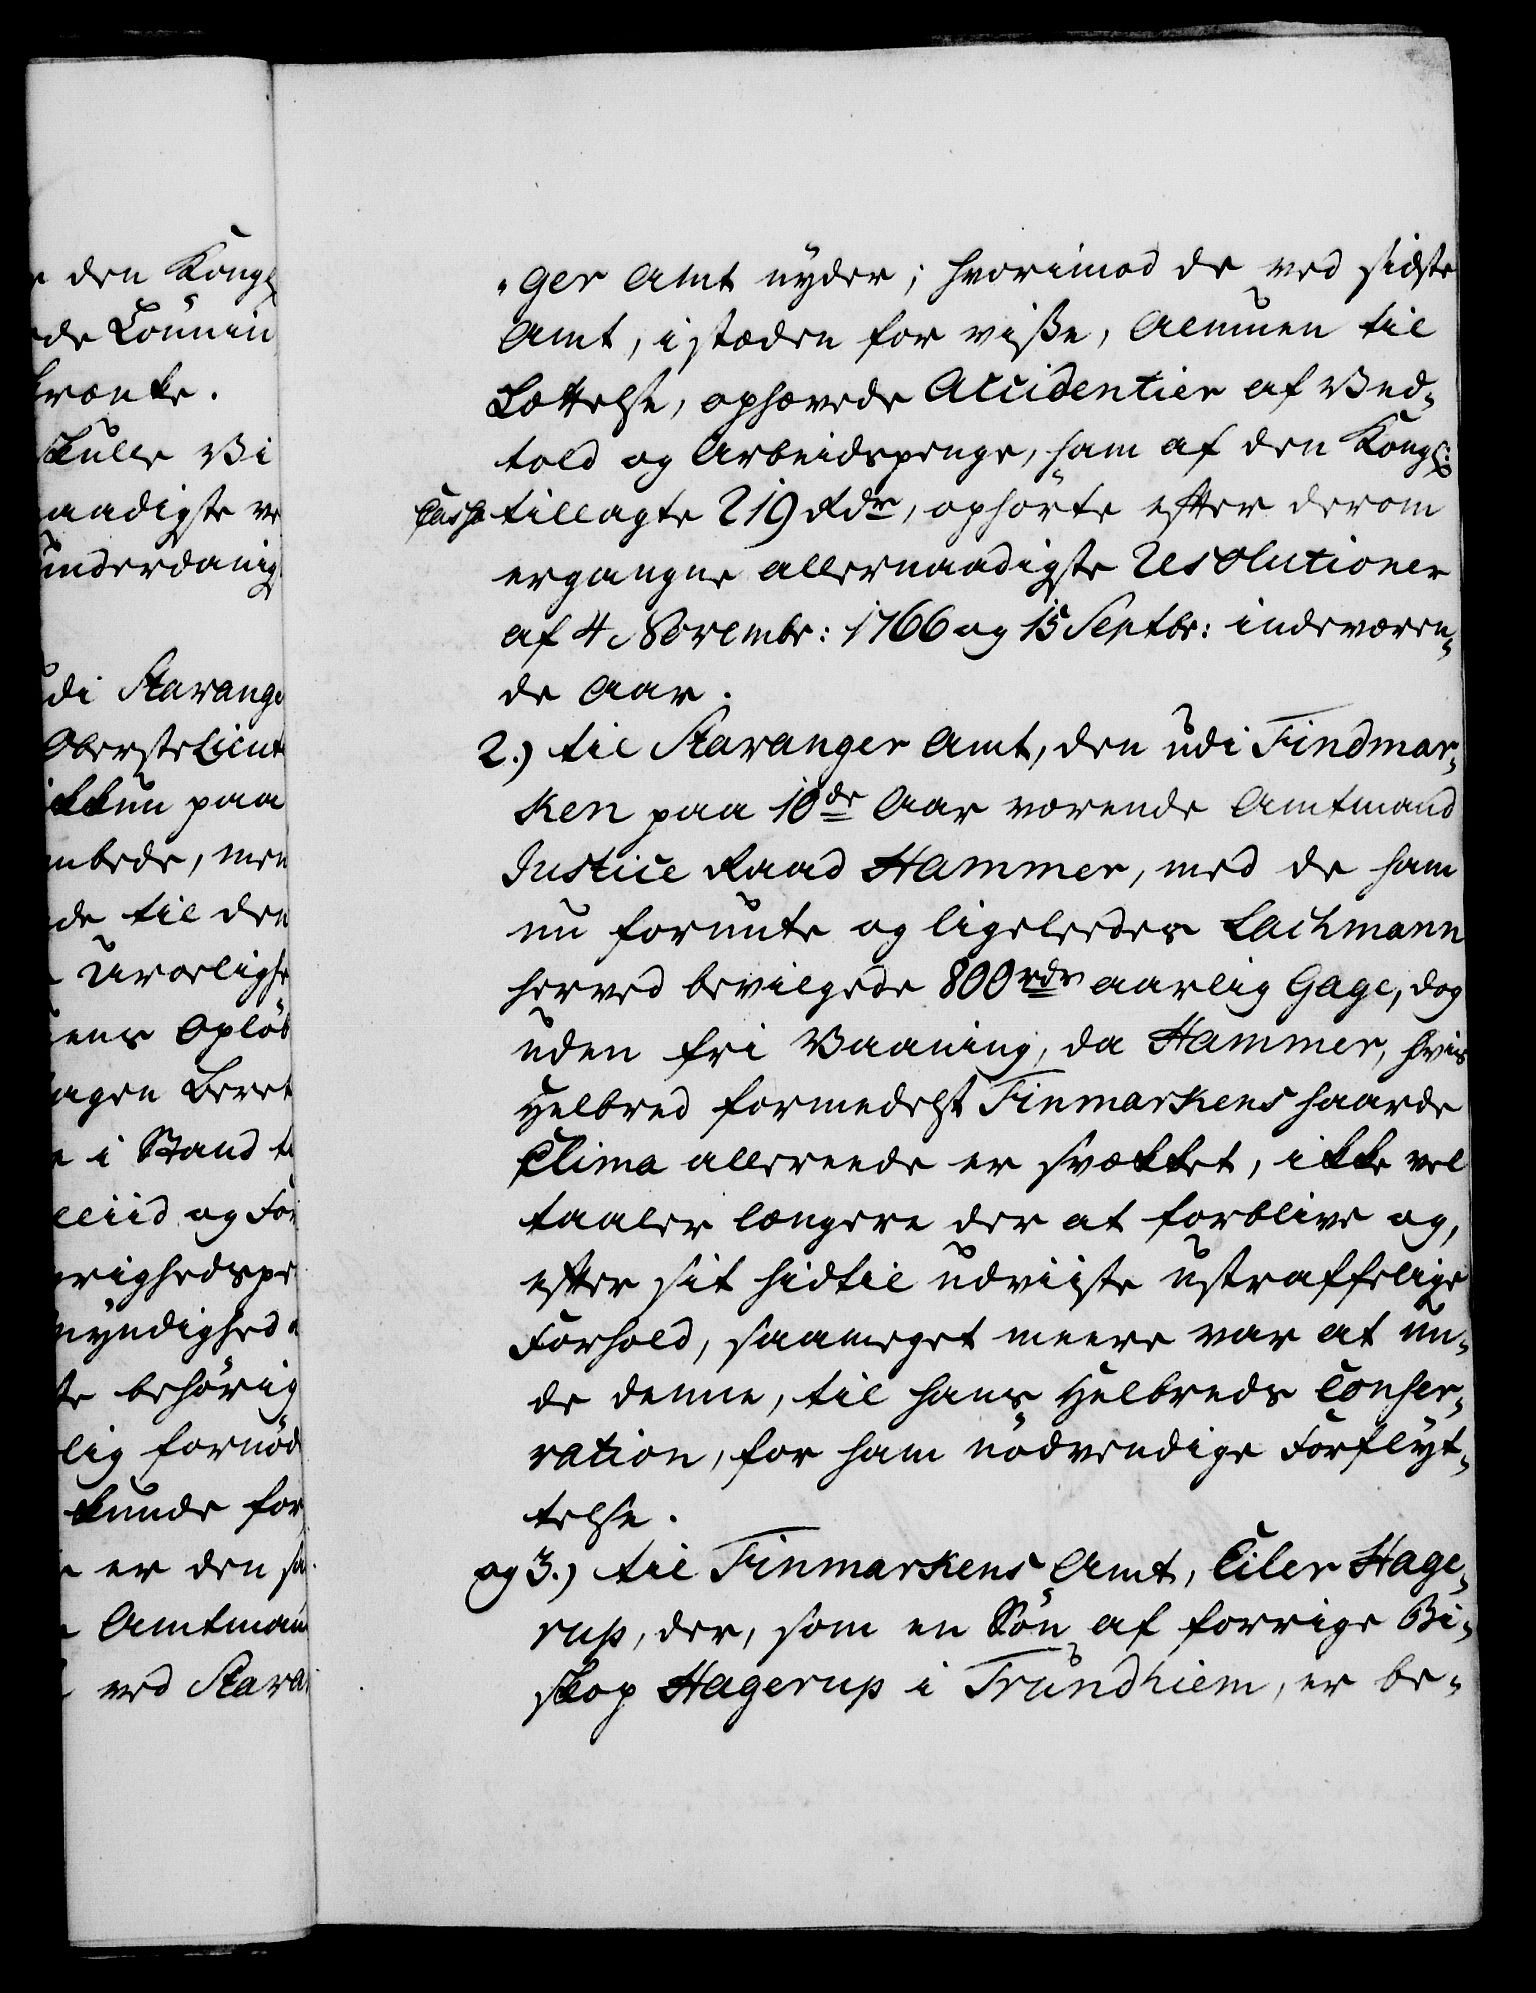 den Kongl
de Communi
krænke.
skulle Vi
aadigste ve
underdanig
di Stavange
ObersteLieut
ikkun paa
mbede, men
de til den
Uroelighe
ens Opløb
agen Beret
i Stand ti
lliid og For
righedspe
myndighed
te behørig
lig fornød
kunde for
er den
Amtman
ved Stava
"ger Amt nyder; hvorimod de ved sidste
Amt, istæden for visse, Almuen til
Lettelse, ophævede Accidentier af Ved-
told og Arbeidspenge, ham af den Kongl:
Cassa tillagte 219 Rdr, ophörte efter derom
ergangne allernaadigste Resolutioner
af 4 Novembr: 1766 og 15 Septbr: indeværen-
de Aar.
2.) til Stavanger Amt, den udi Findmar-
ken paa 10de Aar værende Amtmand
Justice Raad Hammer, med de ham
nu forunte og ligeleedes Lachmann
herved bevilgede 800 rdr aarlig Gage, dog
uden fri Vaaning, da Hammer, hvis
Helbred formedelst Finmarkens haarde
Clima allereede er svækket, ikke vel
taaler længere der at forblive og,
efter sit hidtil udviiste ustraffelige
Forhold, saameget meere var at un-
de denne, til hans Helbreds Conser-
vation, for ham nödvendige Forflyt-
telse.
og 3.) til Finmarkens Amt, Eiler Hage-
rup, der, som en Sön af forrige Bi-
skop Hagerup i Trundhiem, er be-